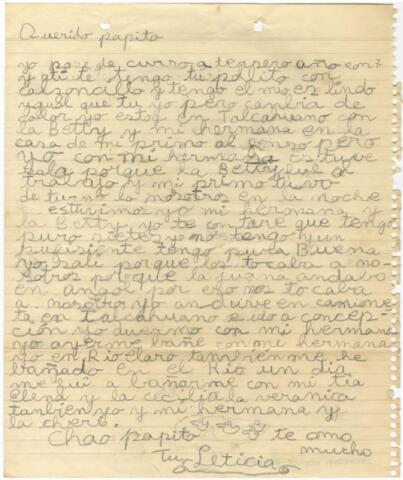 Querido papito
yo pase de curso a tersero año con 7
y a ti te tengo tu polito con
calsoncillo y tengo el mio es lindo
y gual que tu yo pero cambia de
color yo estoy en Talcahuano con
la Betty y mi hermana en la
casa de mi primo al pero
yo con mi hermana estuve
sola porque la Betty fue a
trabajo y mi primo tuvo
de turno la nosotros en la noche
estuvimos yo mi hermana y
la Betty yo te contare que tengo
puro sietes y no tengo y un
pusisiente tengo pura Buena
yo sali porque los tocaba a no
sotros porque la juana andaba
en angol por eso nos tocaba
a nosotro yo anduve en camione
ta en Talcahuano e ido a concep
ción yo duermo con mi hermana
yo ayer me bañe con mi hermana
yo en Rio claro tambien me he
bañado en el Rio un dia
me fui a bañarme con mi tia
elena y la cecilia la veranica
tanbien yo y mi hermana y
la chere.
Chao papito te amo
mucho
Tu Leticia